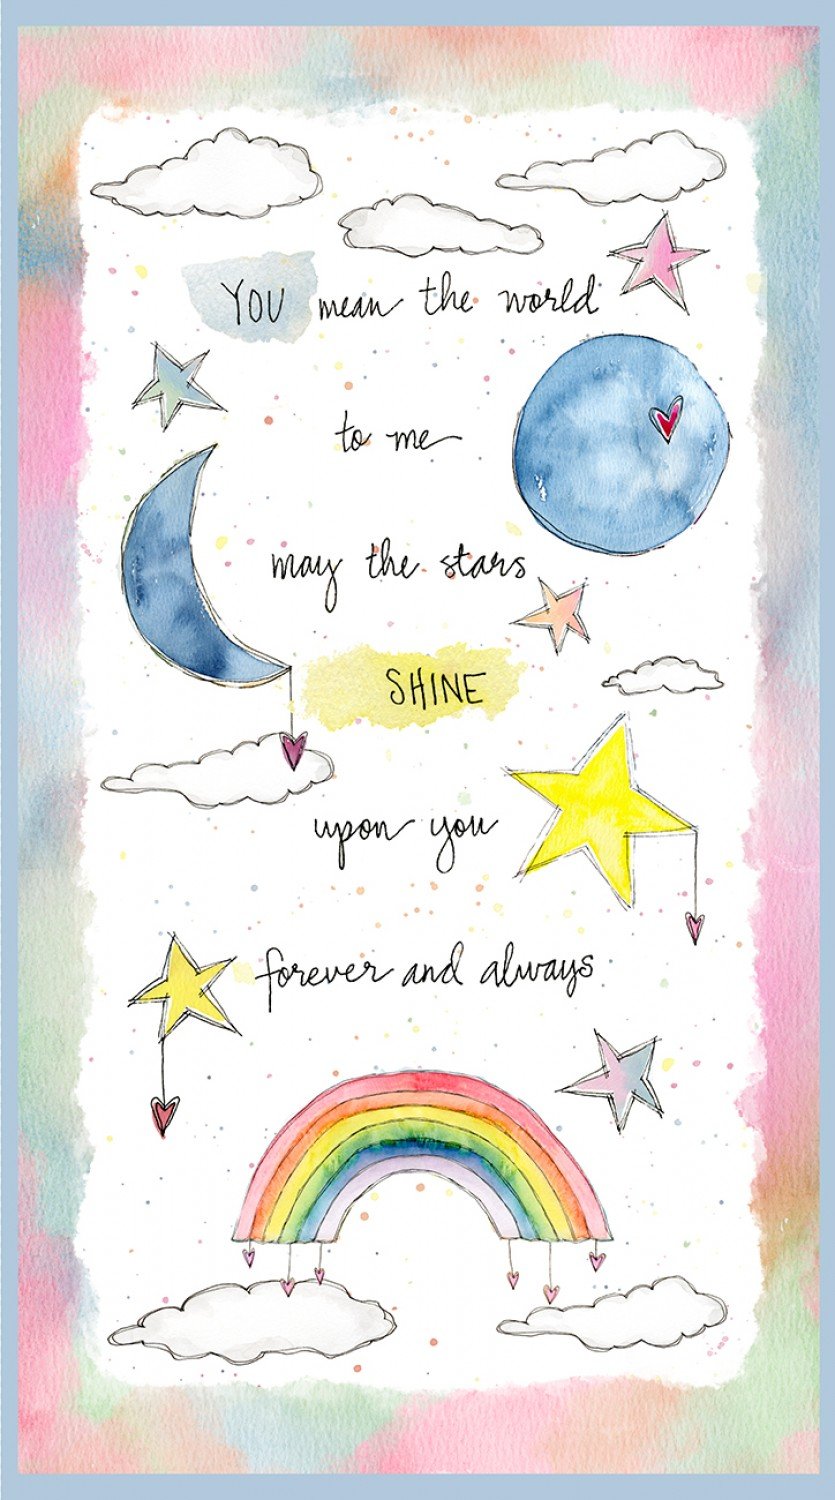 YOU mean the world
to me
may the stars
SHINE
upon you
forever and always